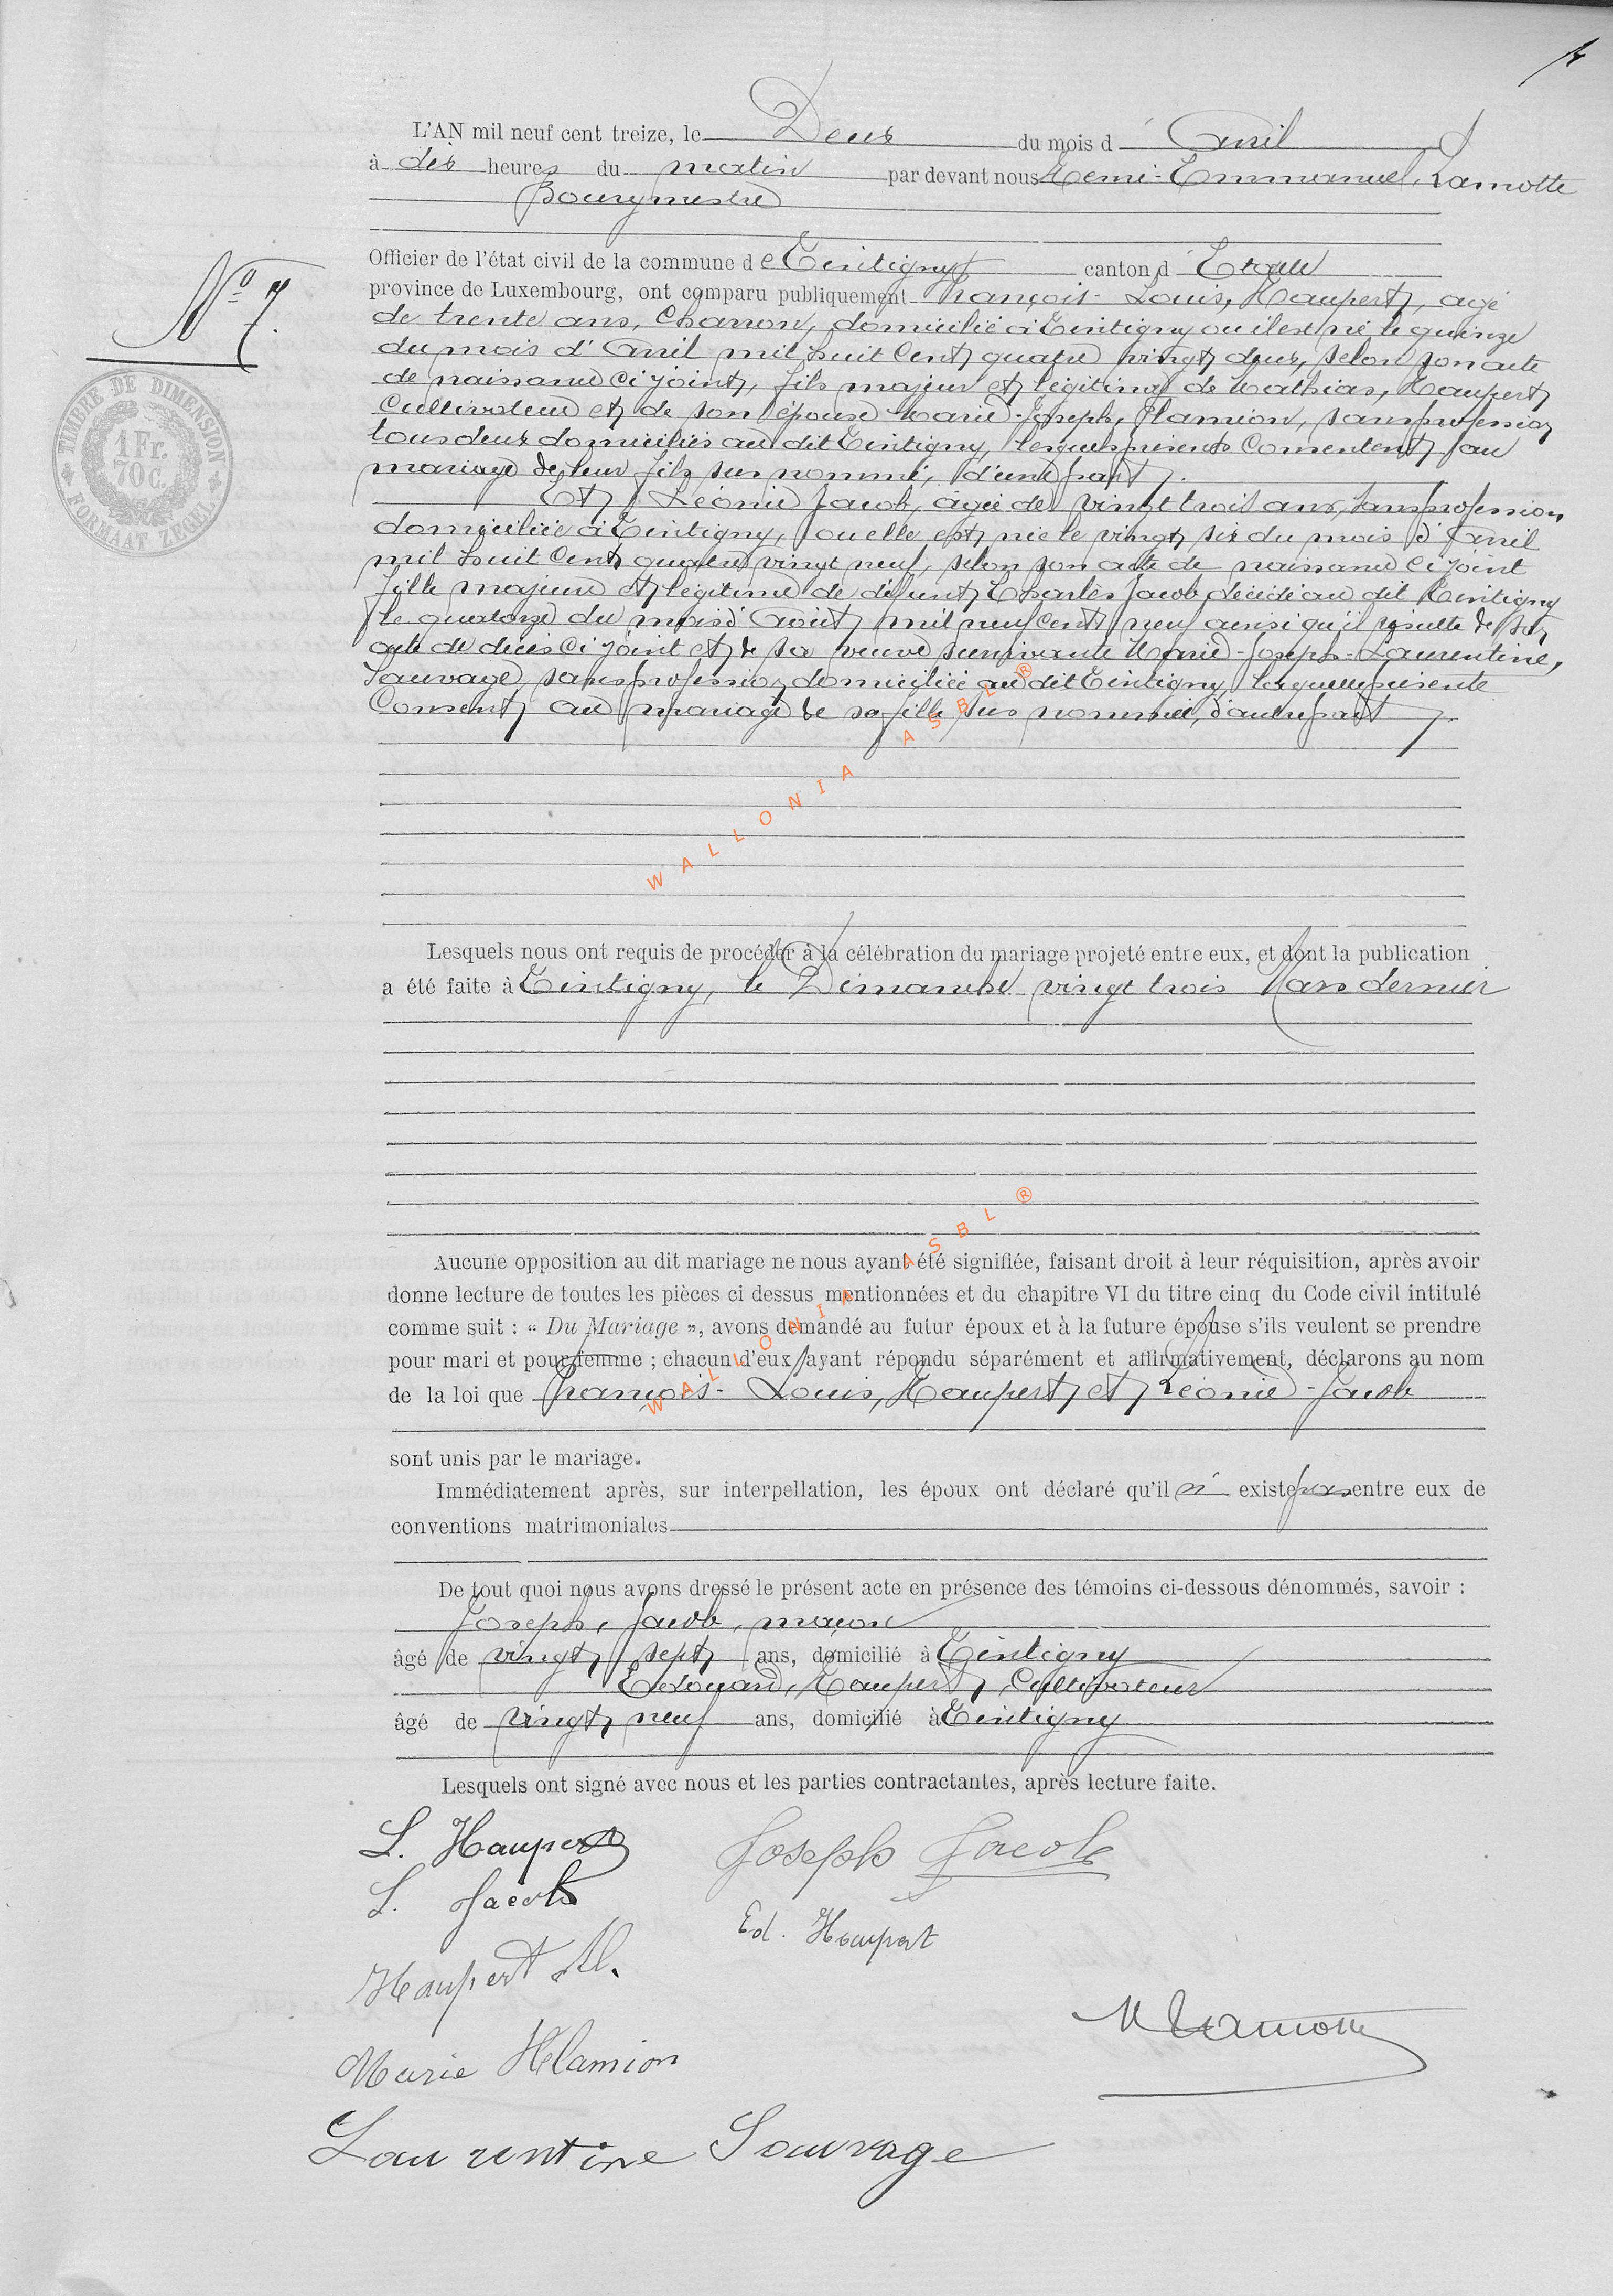 L'AN mil neuf cent treize, le Deux du mois d'Avril
à dix heures du matin par devant nous Remi-Emmanuel, Lamotte
Bourgmestre
Officier de l'état civil de la commune de Tintigny canton d'Etalle
N° 7.
province de Luxembourg, ont comparu publiquement François-Louis, Haupert, agé
de trente ans, Charron, domicilié à Tintigny ou il est né le quinze
du mois d'Avril mil huit Cent quatre vingt deux, selon son acte
de naissance Ci joint, fils majeur et légitime de Mathias, Haupert
Cultivateur et de son épouse Marie-Joseph, Hlamion, sans profession
tous deux domiciliés au dit Tintigny, lesquels présents Consentent au
mariage de leur fils sus nommé, d'une part.
Et Léonie Jacob, agée de vingt trois ans, sans profession,
domiciliée à Tintigny, ou elle est née le vingt six du mois d'Avril
mil huit Cent quatre vingt neuf, selon son acte de naissance Ci joint
fille majeure et légitime de défunt Charles Jacob décédé au dit Tintigny
le quatorze du mois d'Août mil neuf cent neuf ainsi qu'il résulte de son
acte de décès Ci joint et de sa veuve survivante Marie-Joseph-Laurentine,
Sauvage, sans profession domiciliée au dit Tintigny, laquelle présente
Consent au mariage de sa fille sus nommée, d'autre part.
TIMBRE DE DIMENSION
1 Fr.
70 c.
FORMAAT ZEGEL
WALLONIA ASBL ®
Lesquels nous ont requis de procéder à la célébration du mariage projeté entre eux, et dont la publication
a été faite à Tintigny, le Dimanche vingt trois Mars dernier
Aucune opposition au dit mariage ne nous ayant été signifiée, faisant droit à leur réquisition, après avoir
donne lecture de toutes les pièces ci dessus mentionnées et du chapitre VI du titre cinq du Code civil intitulé
comme suit : « Du Mariage », avons demandé au futur époux et à la future épouse s'ils veulent se prendre
pour mari et pour femme ; chacun d'eux ayant répondu séparément et affirmativement, déclarons au nom
de la loi que François-Louis, Haupert et Léonie-Jacob
WALLONIA ASBL ®
sont unis par le mariage.
Immédiatement après, sur interpellation, les époux ont déclaré qu'il n' existe pas entre eux de
conventions matrimoniales
De tout quoi nous avons dressé le présent acte en présence des témoins ci-dessous dénommés, savoir :
Joseph, Jacob, maçon
âgé de vingt sept ans, domicilié à Tintigny
Edouard, Haupert, Cultivateur
âgé de vingt neuf ans, domicilié à Tintigny
Lesquels ont signé avec nous et les parties contractantes, après lecture faite.
L. Haupert Joseph Jacob
L. Jacob
Ed. Haupert
Haupert M.
Lamotte
Marie Hlamion
Laurentine Sauvage